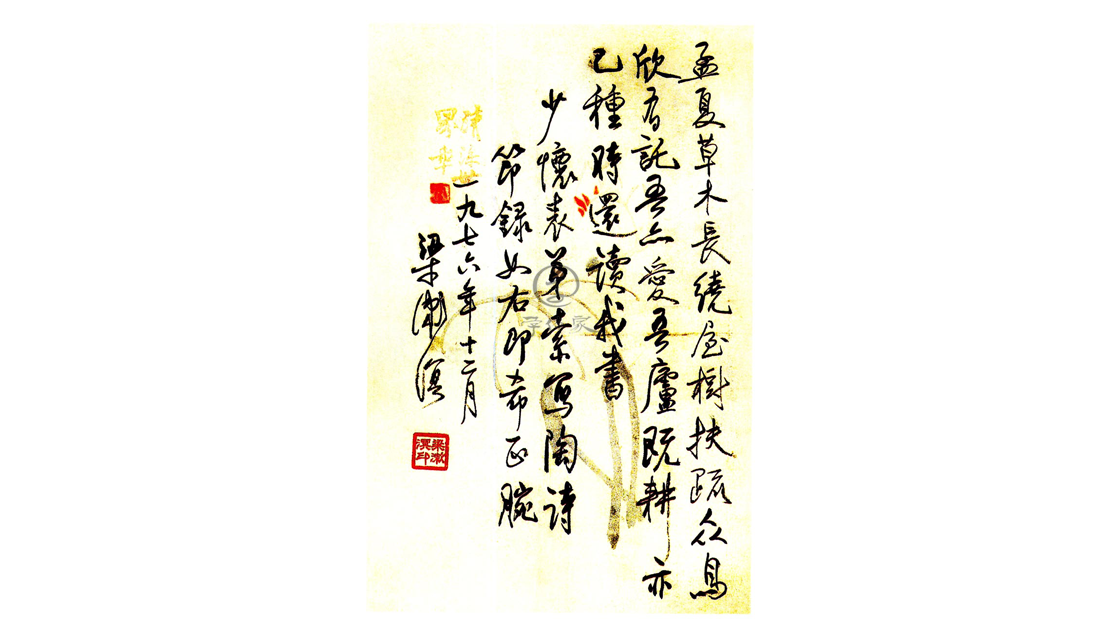 孟夏草木長繞屋樹扶疏众鳥
欣有託吾亦愛吾廬既耕亦
已種時還讀我書
少懷表弟索写陶詩
節録如右即希正腕
一九七六年十二月
梁漱溟
梁漱溟印